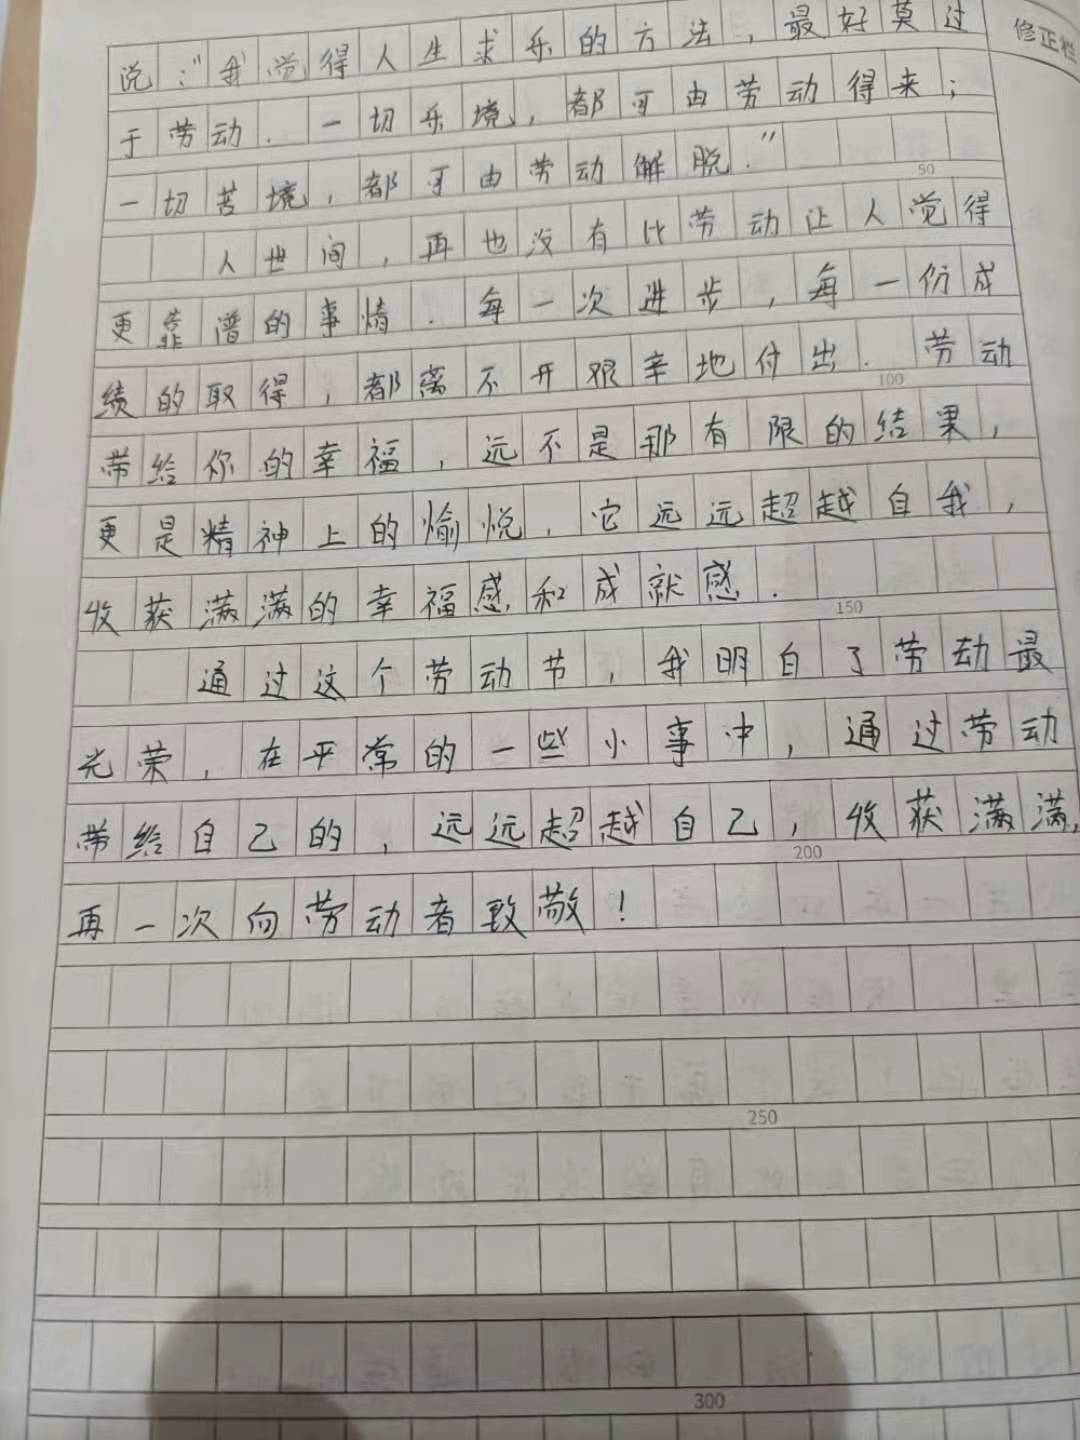 说："我觉得人生求乐的方法，最好莫过
修正栏
于劳动．一切乐境，都可由劳动得来；
一切苦境，都可由劳动解脱．"
50
人世间，再也没有比劳动让人觉得
更靠谱的事情．每一次进步，每一份成
绩的取得，都离不开艰辛地付出．劳动
100
带给你的幸福，远不是那有限的结果，
更是精神上的愉悦，它远远超越自我，
收获满满的幸福感和成就感．
150
通过这个劳动节，我明白了劳动最
光荣，在平常的一些小事中，通过劳动
带给自己的，远远超越自己，收获满满，
200
再一次向劳动者致敬！
250
300